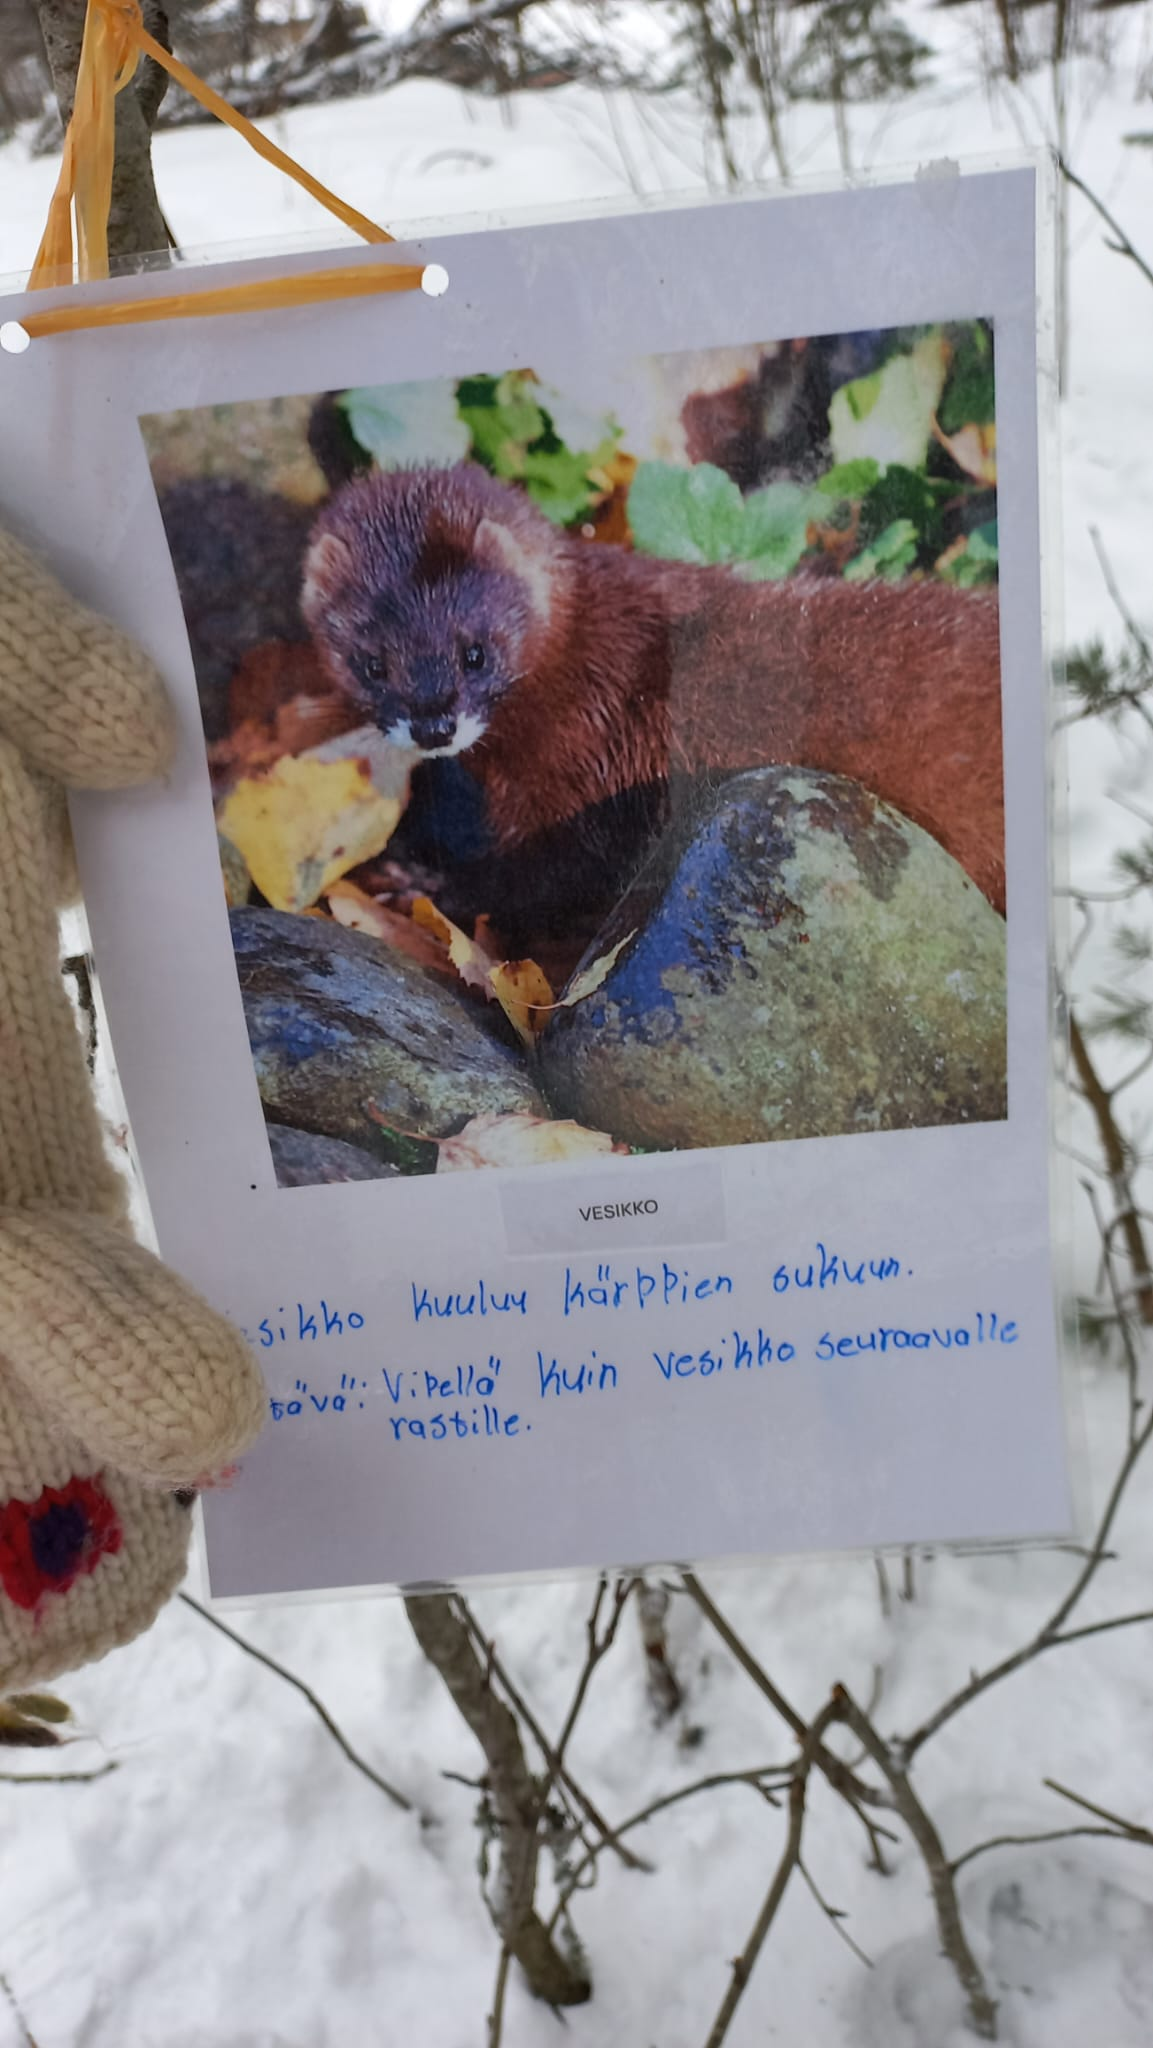 VESIKKO
esikko kuuluu kärppien sukuun.
tävä: Vipellä kuin vesikko seuraavalle
rastille.